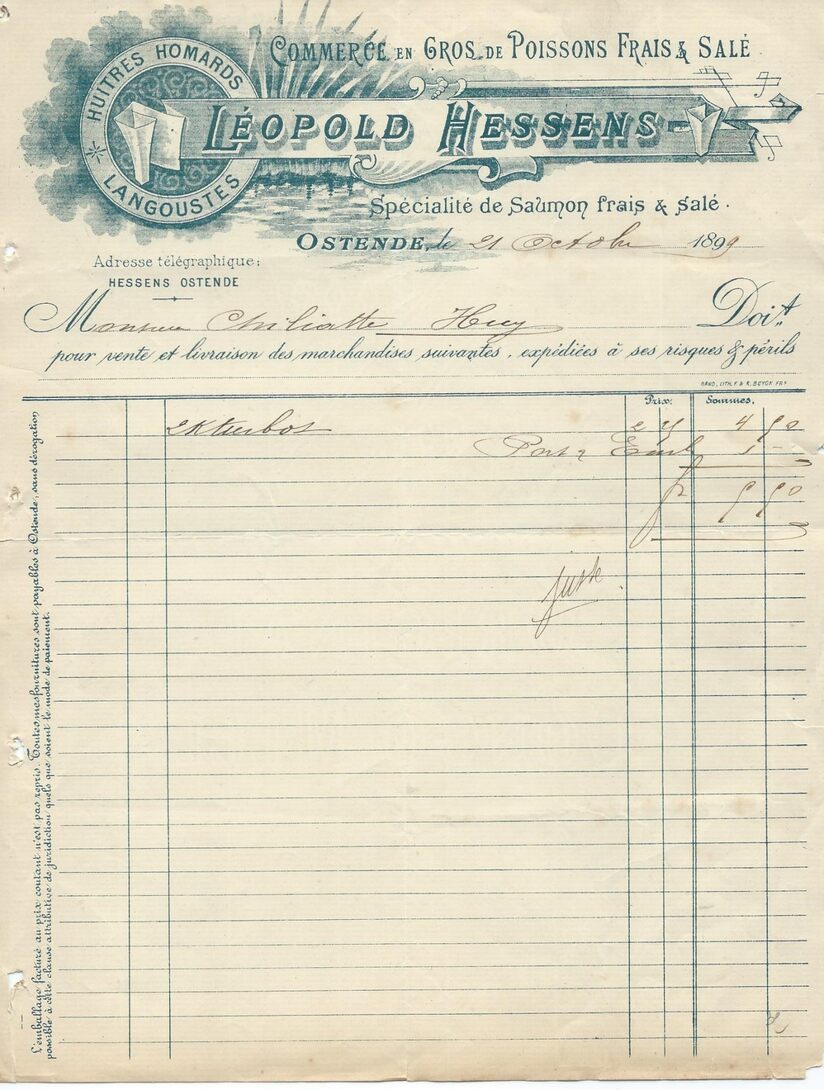 COMMERCE EN GROS DE POISSONS FRAIS & SALÉ
HUITRES HOMARDS
LANGOUSTES
LÉOPOLD HESSENS
Spécialité de Saumon frais & salé.
OSTENDE, le 21 Octobre 1899
Adresse télégraphique:
HESSENS OSTENDE
Monsieur Huy Doit
pour vente et livraison des marchandises suivantes, expédiées à ses risques & périls
GAND, LITH. F. & R. BUYCK FRS
Prix: Sommes.
2K turbot 2 4
Port &
juste
L'emballage facturé au prix coutant n'est pas repris. Toutes mes fournitures sont payables à Ostende, sans dérogation
possible à cette clause attributive de juridiction quels que soient le mode de paiement.